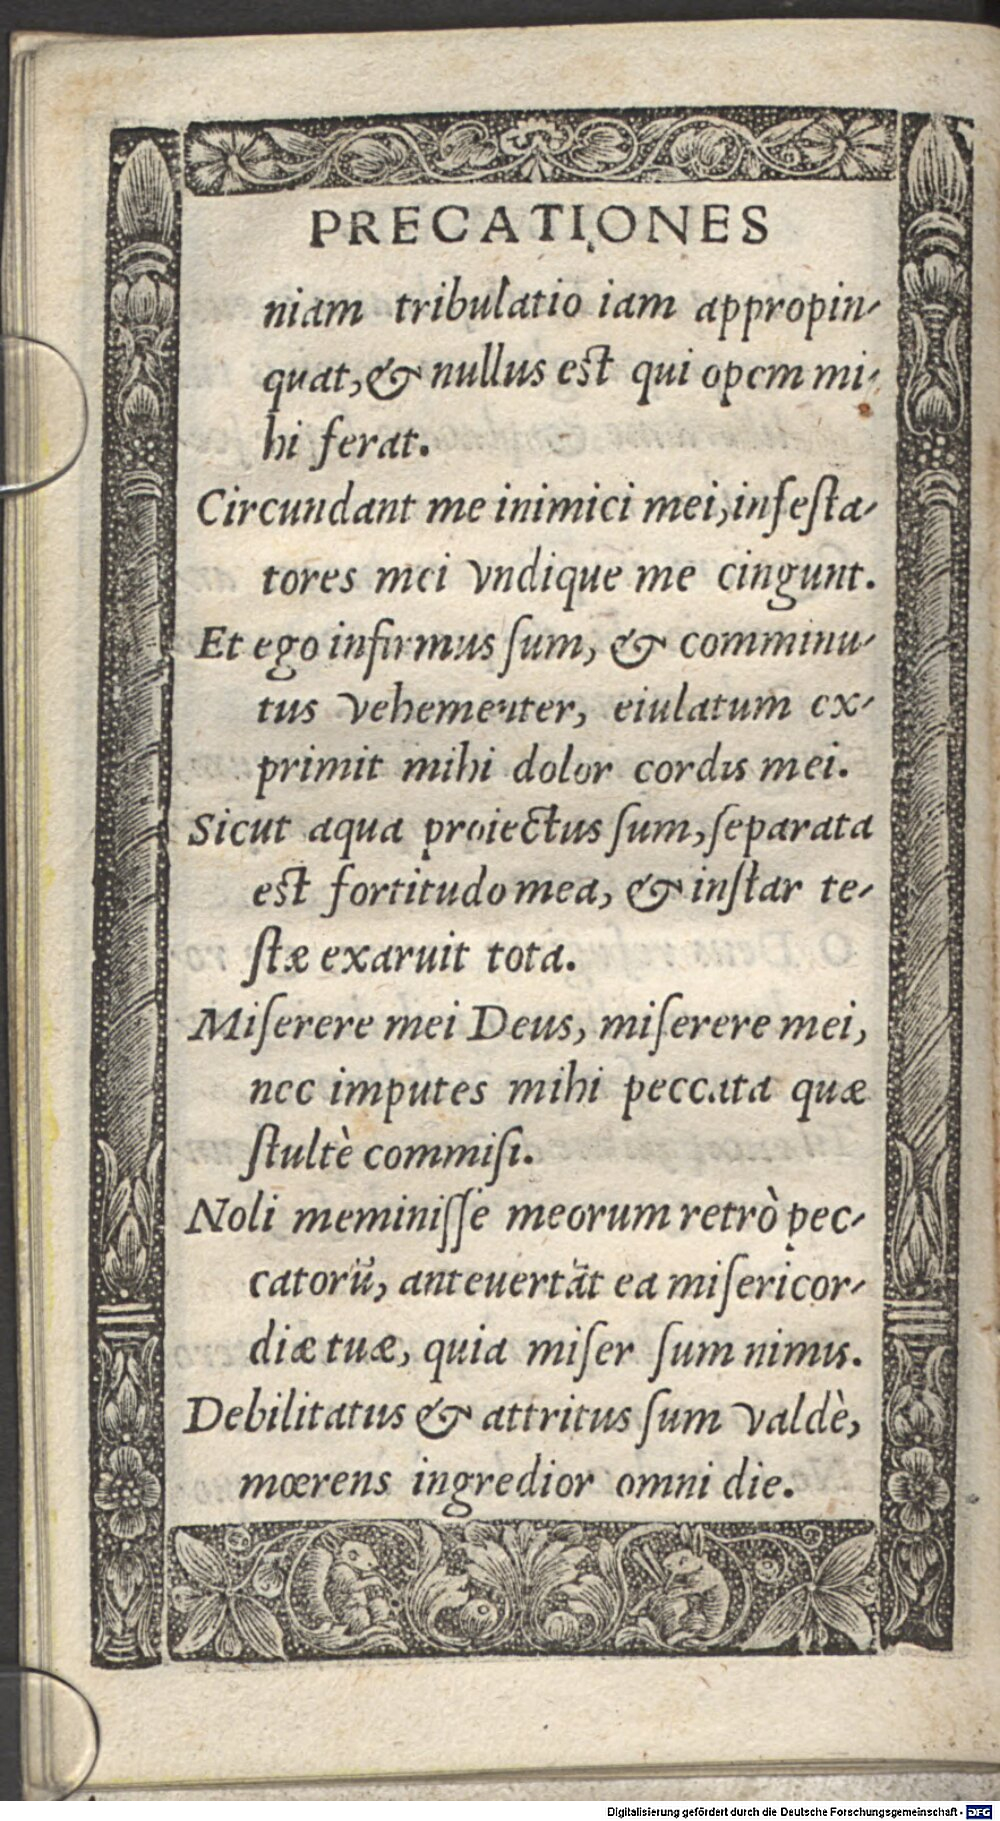 PRECATIONES
niam tribulatio iam appropin-
quat, & nullus est qui opem mi-
hi ferat.
Circundant me inimici mei, infesta-
tores mei vndique me cingunt.
Et ego infirmus sum, & comminu-
tus vehementer, eiulatum ex-
primit mihi dolor cordis mei.
Sicut aqua proiectus sum, separata
est fortitudo mea, & instar te-
stæ exaruit tota.
Miserere mei Deus, miserere mei,
nec imputes mihi peccata quæ
stultè commisi.
Noli meminisse meorum retrò pec-
catorū, anteuertāt ea misericor-
diæ tuæ, quia miser sum nimis.
Debilitatus & attritus sum valdè,
mœrens ingredior omni die.
Digitalisierung gefördert durch die Deutsche Forschungsgemeinschaft - DFG